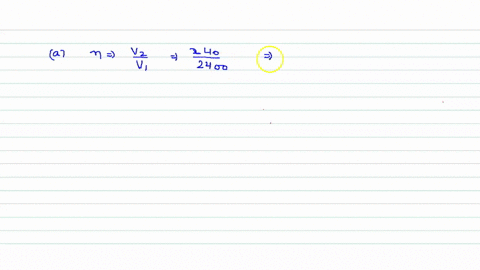 (a) η ⇒ V₂/V₁ ⇒ 240/2400 ⇒